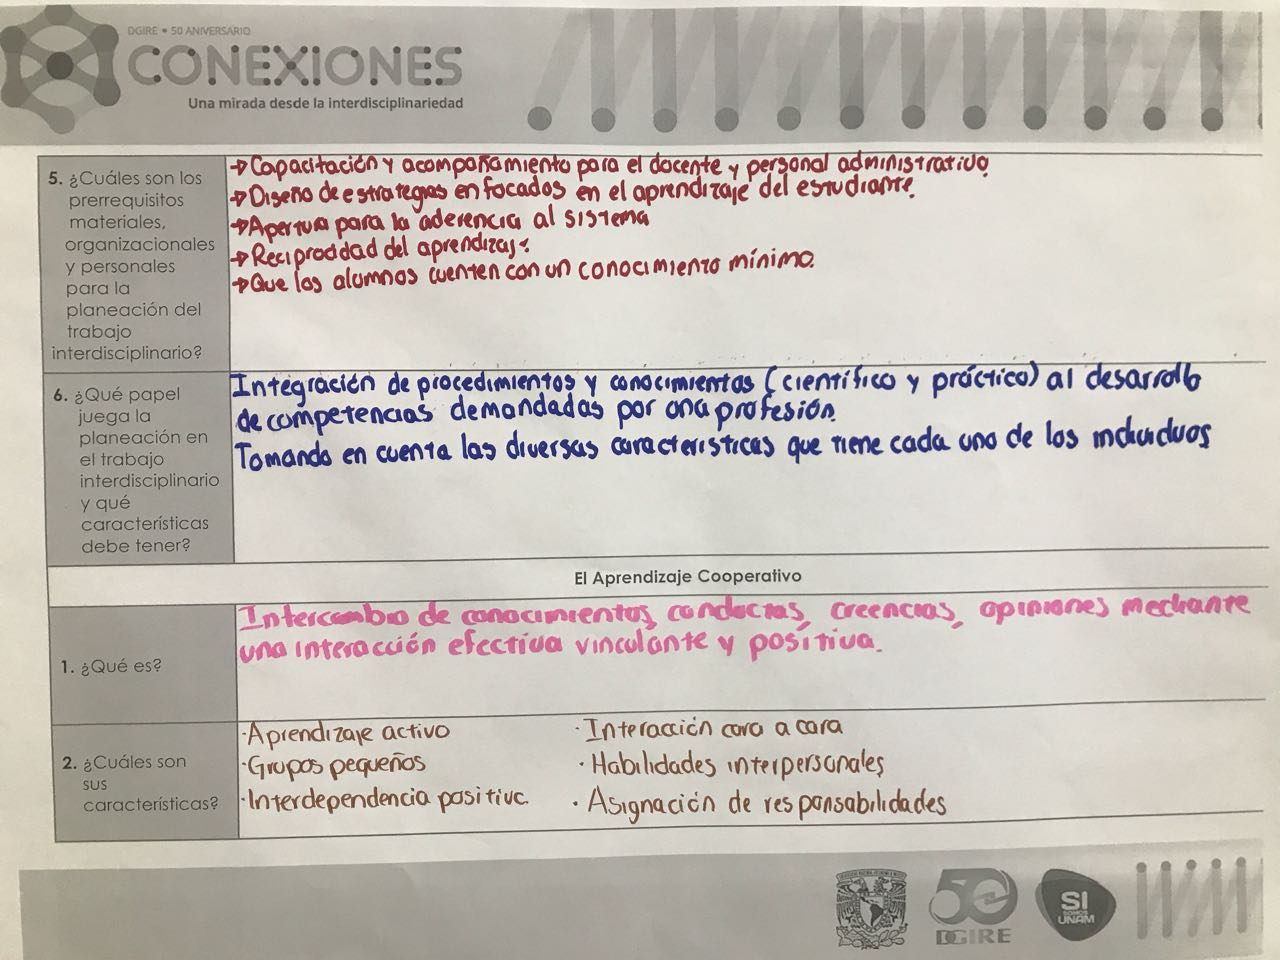 DGIRE • 50 ANIVERSARIO
CONEXIONES
Una mirada desde la interdisciplinariedad
5. ¿Cuáles son los
prerrequisitos
materiales,
organizacionales
y personales
para la
planeación del
trabajo
interdisciplinario?
→Capacitación y acompañamiento para el docente y personal administrativo.
→Diseño de estrategias en focados en el aprendizaje del estudiante.
→Apertura para la aderencia al sistema
→Reciprocdad del aprendizaje.
→Que los alumnos cuenten con un conocimiento mínimo.
6. ¿Qué papel
juega la
planeación en
el trabajo
interdisciplinario
y qué
características
debe tener?
Integración de procedimientos y conocimientos (científico y práctico) al desarrollo
de competencias demandadas por una profesión.
Tomando en cuenta las diversas características que tiene cada uno de los individuos
El Aprendizaje Cooperativo
1. ¿Qué es?
Intercambio de conocimientos, conductas, creencias, opiniones mediante
una interacción efectiva vinculante y positiva.
2. ¿Cuáles son
sus
características?
·Aprendizaje activo
·Grupos pequeños
·Interdependencia positiva.
·Interacción cara a cara
·Habilidades interpersonales
·Asignación de responsabilidades
50
DGIRE
SI
SOMOS
UNAM